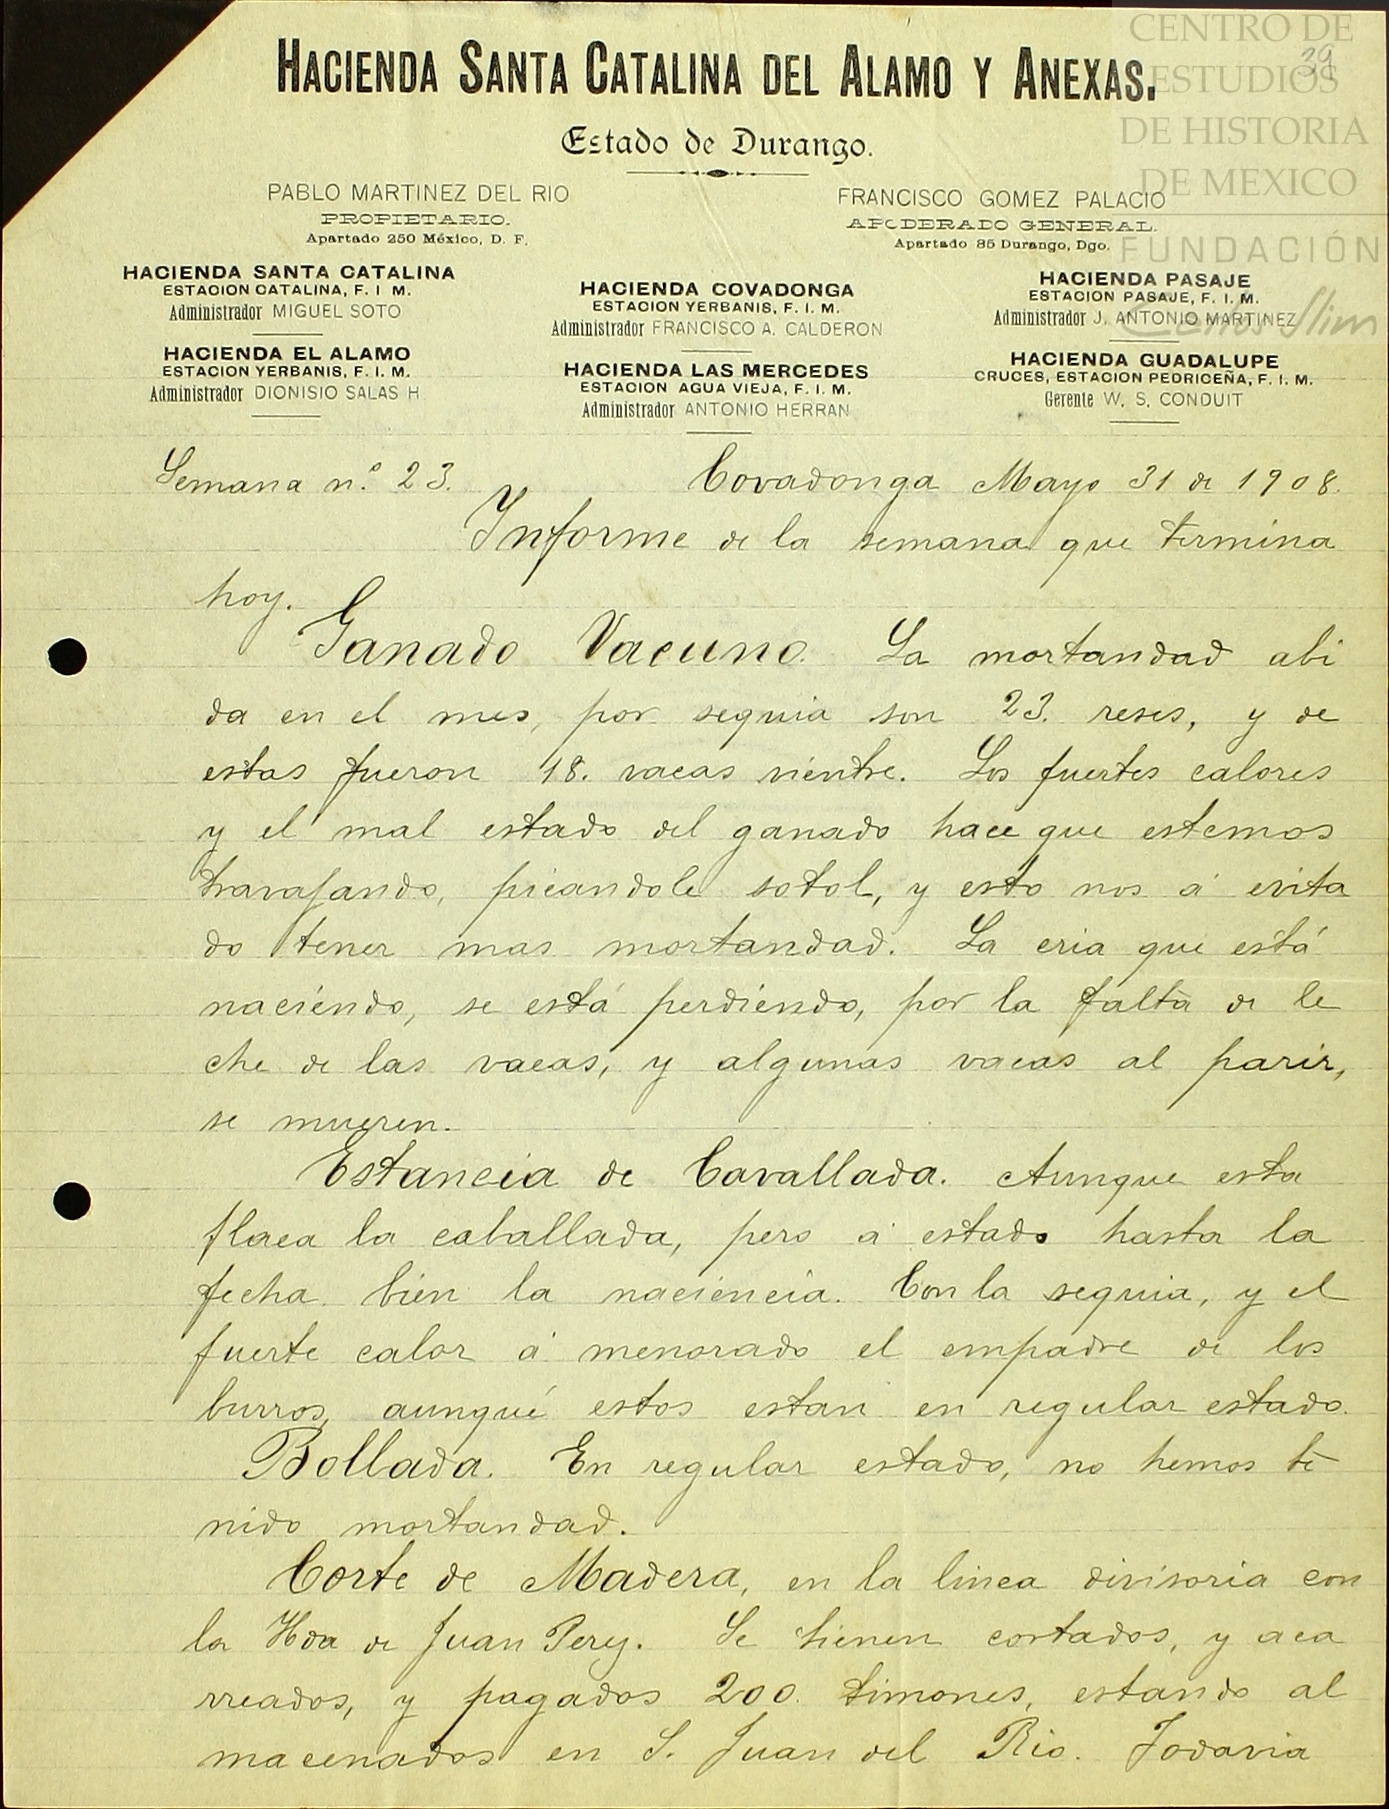 CENTRO DE
ESTUDIOS
DE HISTORIA
DE MEXICO
FUNDACIÓN
Carlos Slim
39
HACIENDA SANTA CATALINA DEL ALAMO Y ANEXAS.
Estado de Durango.
PABLO MARTINEZ DEL RIO
PROPIETARIO.
Apartado 250 México, D. F.
FRANCISCO GOMEZ PALACIO
APODERADO GENERAL.
Apartado 85 Durango, Dgo.
HACIENDA SANTA CATALINA
ESTACION CATALINA, F. I M.
Administrador MIGUEL SOTO
HACIENDA COVADONGA
ESTACION YERBANIS, F. I. M.
Administrador FRANCISCO A. CALDERON
HACIENDA PASAJE
ESTACION PASAJE, F. I. M.
Administrador J. ANTONIO MARTINEZ
HACIENDA EL ALAMO
ESTACION YERBANIS, F. I. M.
Administrador DIONISIO SALAS H
HACIENDA LAS MERCEDES
ESTACION AGUA VIEJA, F. I. M.
Administrador ANTONIO HERRAN
HACIENDA GUADALUPE
CRUCES, ESTACION PEDRICEÑA, F. I. M.
Gerente W. S. CONDUIT
Semana n.º 23. Covadonga Mayo 31 de 1908.
Informe de la semana que termina
hoy.
Ganado Vacuno. La mortandad abi
da en el mes, por sequia son 23. reses, y de
estas fueron 18. vacas vientre. Los fuertes calores
y el mal estado del ganado hace que estemos
travajando, picandole sotol, y esto nos á evita
do tener mas mortandad. La cria que está
naciéndo, se está perdiéndo, por la falta de le
che de las vacas, y algunas vacas al parir,
se mueren.
Estancia de Cavallada. Aunque esta
flaca la caballada, pero á estado hasta la
fecha bién la naciéncia. Con la sequia, y el
fuerte calor á menorado el empadre de los
burros, aunqué estos estan en regular estado.
Bollada. En regular estado, no hemos te
nido mortandad.
Corte de Madera, en la linea divisoria con
la Hda de Juan Perez. Se tienen cortados, y aca
rreados, y pagados 200. timones, estando al
macenados en S. Juan del Rio. Todavia